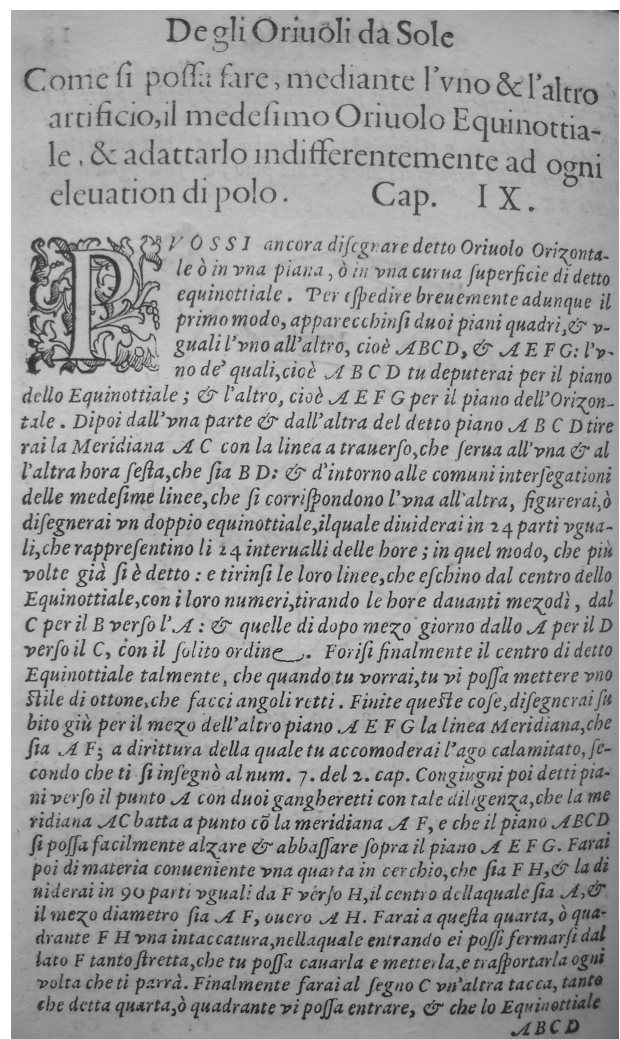 Degli Oriuoli da Sole
Come ſi poſſa fare, mediante l'vno & l'altro
artificio, il medeſimo Oriuolo Equinottia-
le, & adattarlo indifferentemente ad ogni
eleuation di polo. Cap. IX.
PVOSSI ancora diſegnare detto Oriuolo Orizonta-
le ò in vna piana, ò in vna curua ſuperficie di detto
equinottiale. Per eſpedire breuemente adunque il
primo modo, apparecchinſi duoi piani quadri, & v-
guali l'vno all'altro, cioè ABCD, & AEFG: l'v-
no de' quali, cioè ABCD tu deputerai per il piano
dello Equinottiale; & l'altro, cioè AEFG per il piano dell'Orizon-
tale. Dipoi dall'vna parte & dall'altra del detto piano ABCD tire
rai la Meridiana AC con la linea a trauerſo, che ſerua all'vna & al
l'altra hora ſeſta, che ſia BD: & d'intorno alle comuni interſegationi
delle medeſime linee, che ſi corriſpondono l'vna all'altra, figurerai, ò
diſegnerai vn doppio equinottiale, ilquale diuiderai in 24 parti vgua-
li, che rappreſentino li 24 interualli delle hore; in quel modo, che più
volte già ſi è detto: e tirinſi le loro linee, che eſchino dal centro dello
Equinottiale, con i loro numeri, tirando le hore dauanti mezodì, dal
C per il B verſo l'A: & quelle di dopo mezo giorno dallo A per il D
verſo il C, con il ſolito ordine. Foriſi finalmente il centro di detto
Equinottiale talmente, che quando tu vorrai, tu vi poſſa mettere vno
ſtile di ottone, che facci angoli retti. Finite queſte coſe, diſegnerai ſu
bito giù per il mezo dell'altro piano AEFG la linea Meridiana, che
ſia AF; a dirittura della quale tu accomoderai l'ago calamitato, ſe-
condo che ti ſi inſegnò al num. 7. del 2. cap. Congiugni poi detti pia-
ni verſo il punto A con duoi gangheretti con tale diligenza, che la me
ridiana AC batta a punto cõ la meridiana AF, e che il piano ABCD
ſi poſſa facilmente alzare & abbaſſare ſopra il piano AEFG. Farai
poi di materia conueniente vna quarta in cerchio, che ſia FH, & la di
uiderai in 90 parti vguali da F verſo H, il centro dellaquale ſia A, &
il mezo diametro ſia AF, ouero AH. Farai a queſta quarta, ò qua-
drante FH vna intaccatura, nellaquale entrando ei poſſi fermarſi dal
lato F tanto ſtretta, che tu poſſa cauarla e metterla, e traſportarla ogni
volta che ti parrà. Finalmente farai al ſegno C vn'altra tacca, tanto
che detta quarta, ò quadrante vi poſſa entrare, & che lo Equinottiale
ABCD